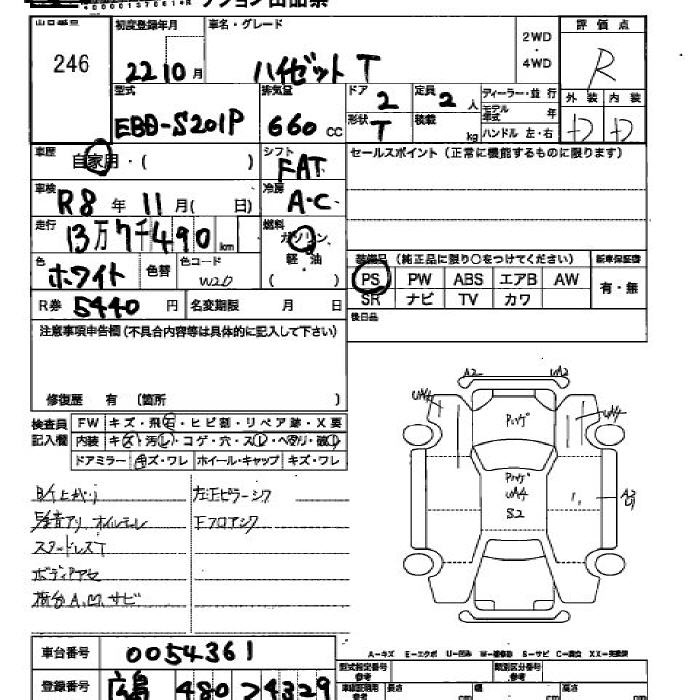 246
初度登録年月
車名・グレード
22 10 月
ハイゼット T
2WD
・
4WD
評価点
R
外装 内装
型式
EBD-S201P
排気量
660 CC
ドア 2
形状 T
定員 2 人
積載 kg
ディーラー・並行
モデル年式 年
ハンドル 左・右
車歴
自家用・( )
シフト
FAT
セールスポイント(正常に機能するものに限ります)
車検
R8 年 11 月( 日)
冷房
A・C
走行
13万7千490 km
燃料
ガソリン、
軽・油
( )
色
ホワイト
色替
色コード
W20
装備品(純正品に限り○をつけてください)
新車保証書
PS PW ABS エアB AW
SR ナビ TV カワ
有・無
後日品
R券 5440 円
名変期限 月 日
注意事項申告欄(不具合内容等は具体的に記入して下さい)
修復歴 有 〔箇所 〕
検査員
記入欄
FW キズ・飛石・ヒビ割・リペア跡・X要
内装 キズ・汚レ・コゲ・穴・スレ・ヘタリ・破レ
ドアミラー キズ・ワレ ホイール・キャップ キズ・ワレ
スタッドレスT
ボディアセ
荷台A.M.サビ
左Fピラーシワ
Fフロアシワ
A2
UA2
UA4
UA4
UA4
S2
A3
車台番号
0054361
登録番号
広島 480 ツ 4329
A-キズ E-エクボ U-凹み W-補修跡 S-サビ C-腐食 XX-交換済
型式指定番号
参考
類別区分番号
参考
車検証明用
参考
長さ cm
幅 cm
高さ cm